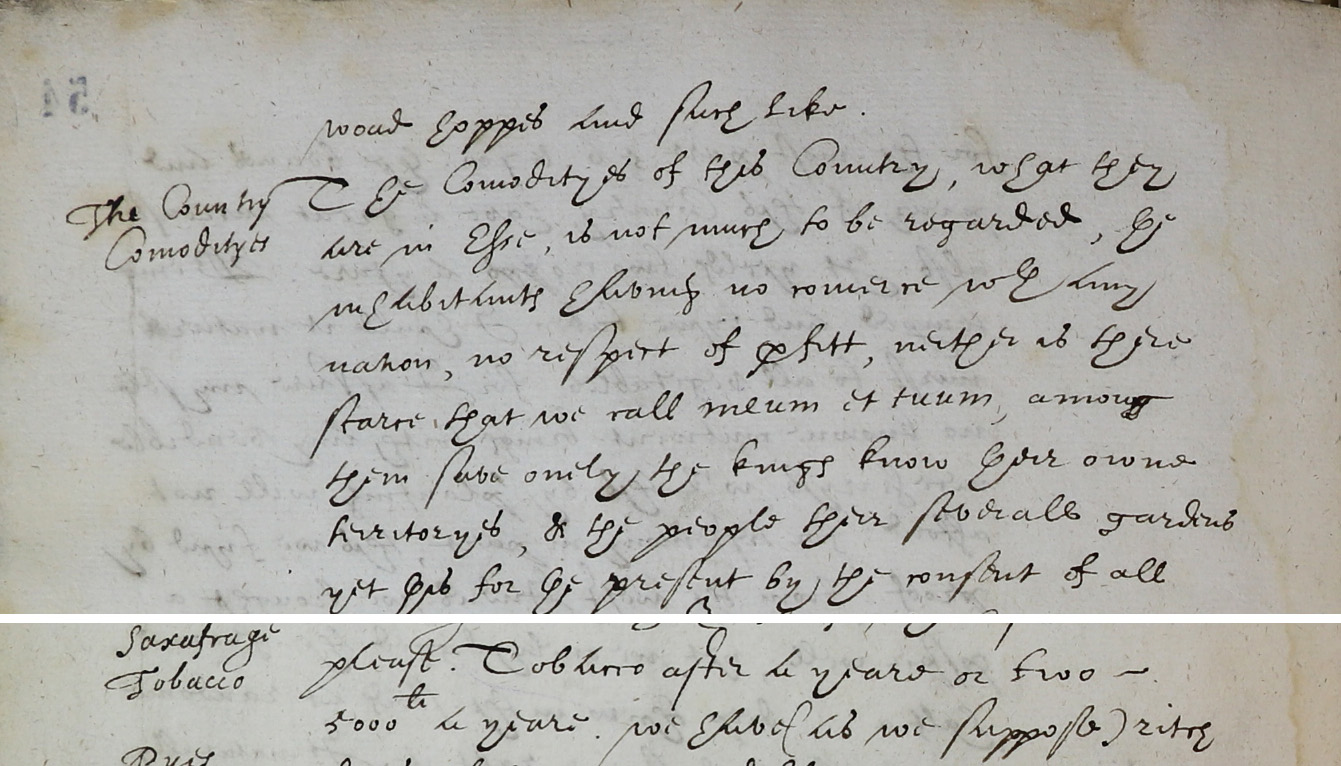 54
woad hoppes and such like.
The Country The Comodityes of this Country, what they
Comodityes are in Esse, is not much to be regarded, the
inhabitants having no comerce wth any
nation, no respect of profitt, neither is there
scarce that we call meum et tuum among
them save onely the kings know their owne
territoryes, & the people their severall gardens
yet this for the present by the consent of all
Saxafrage
Tobacco please. Tobacco after a yeare or two
5000li a yeare. we have (as we suppose) ritch